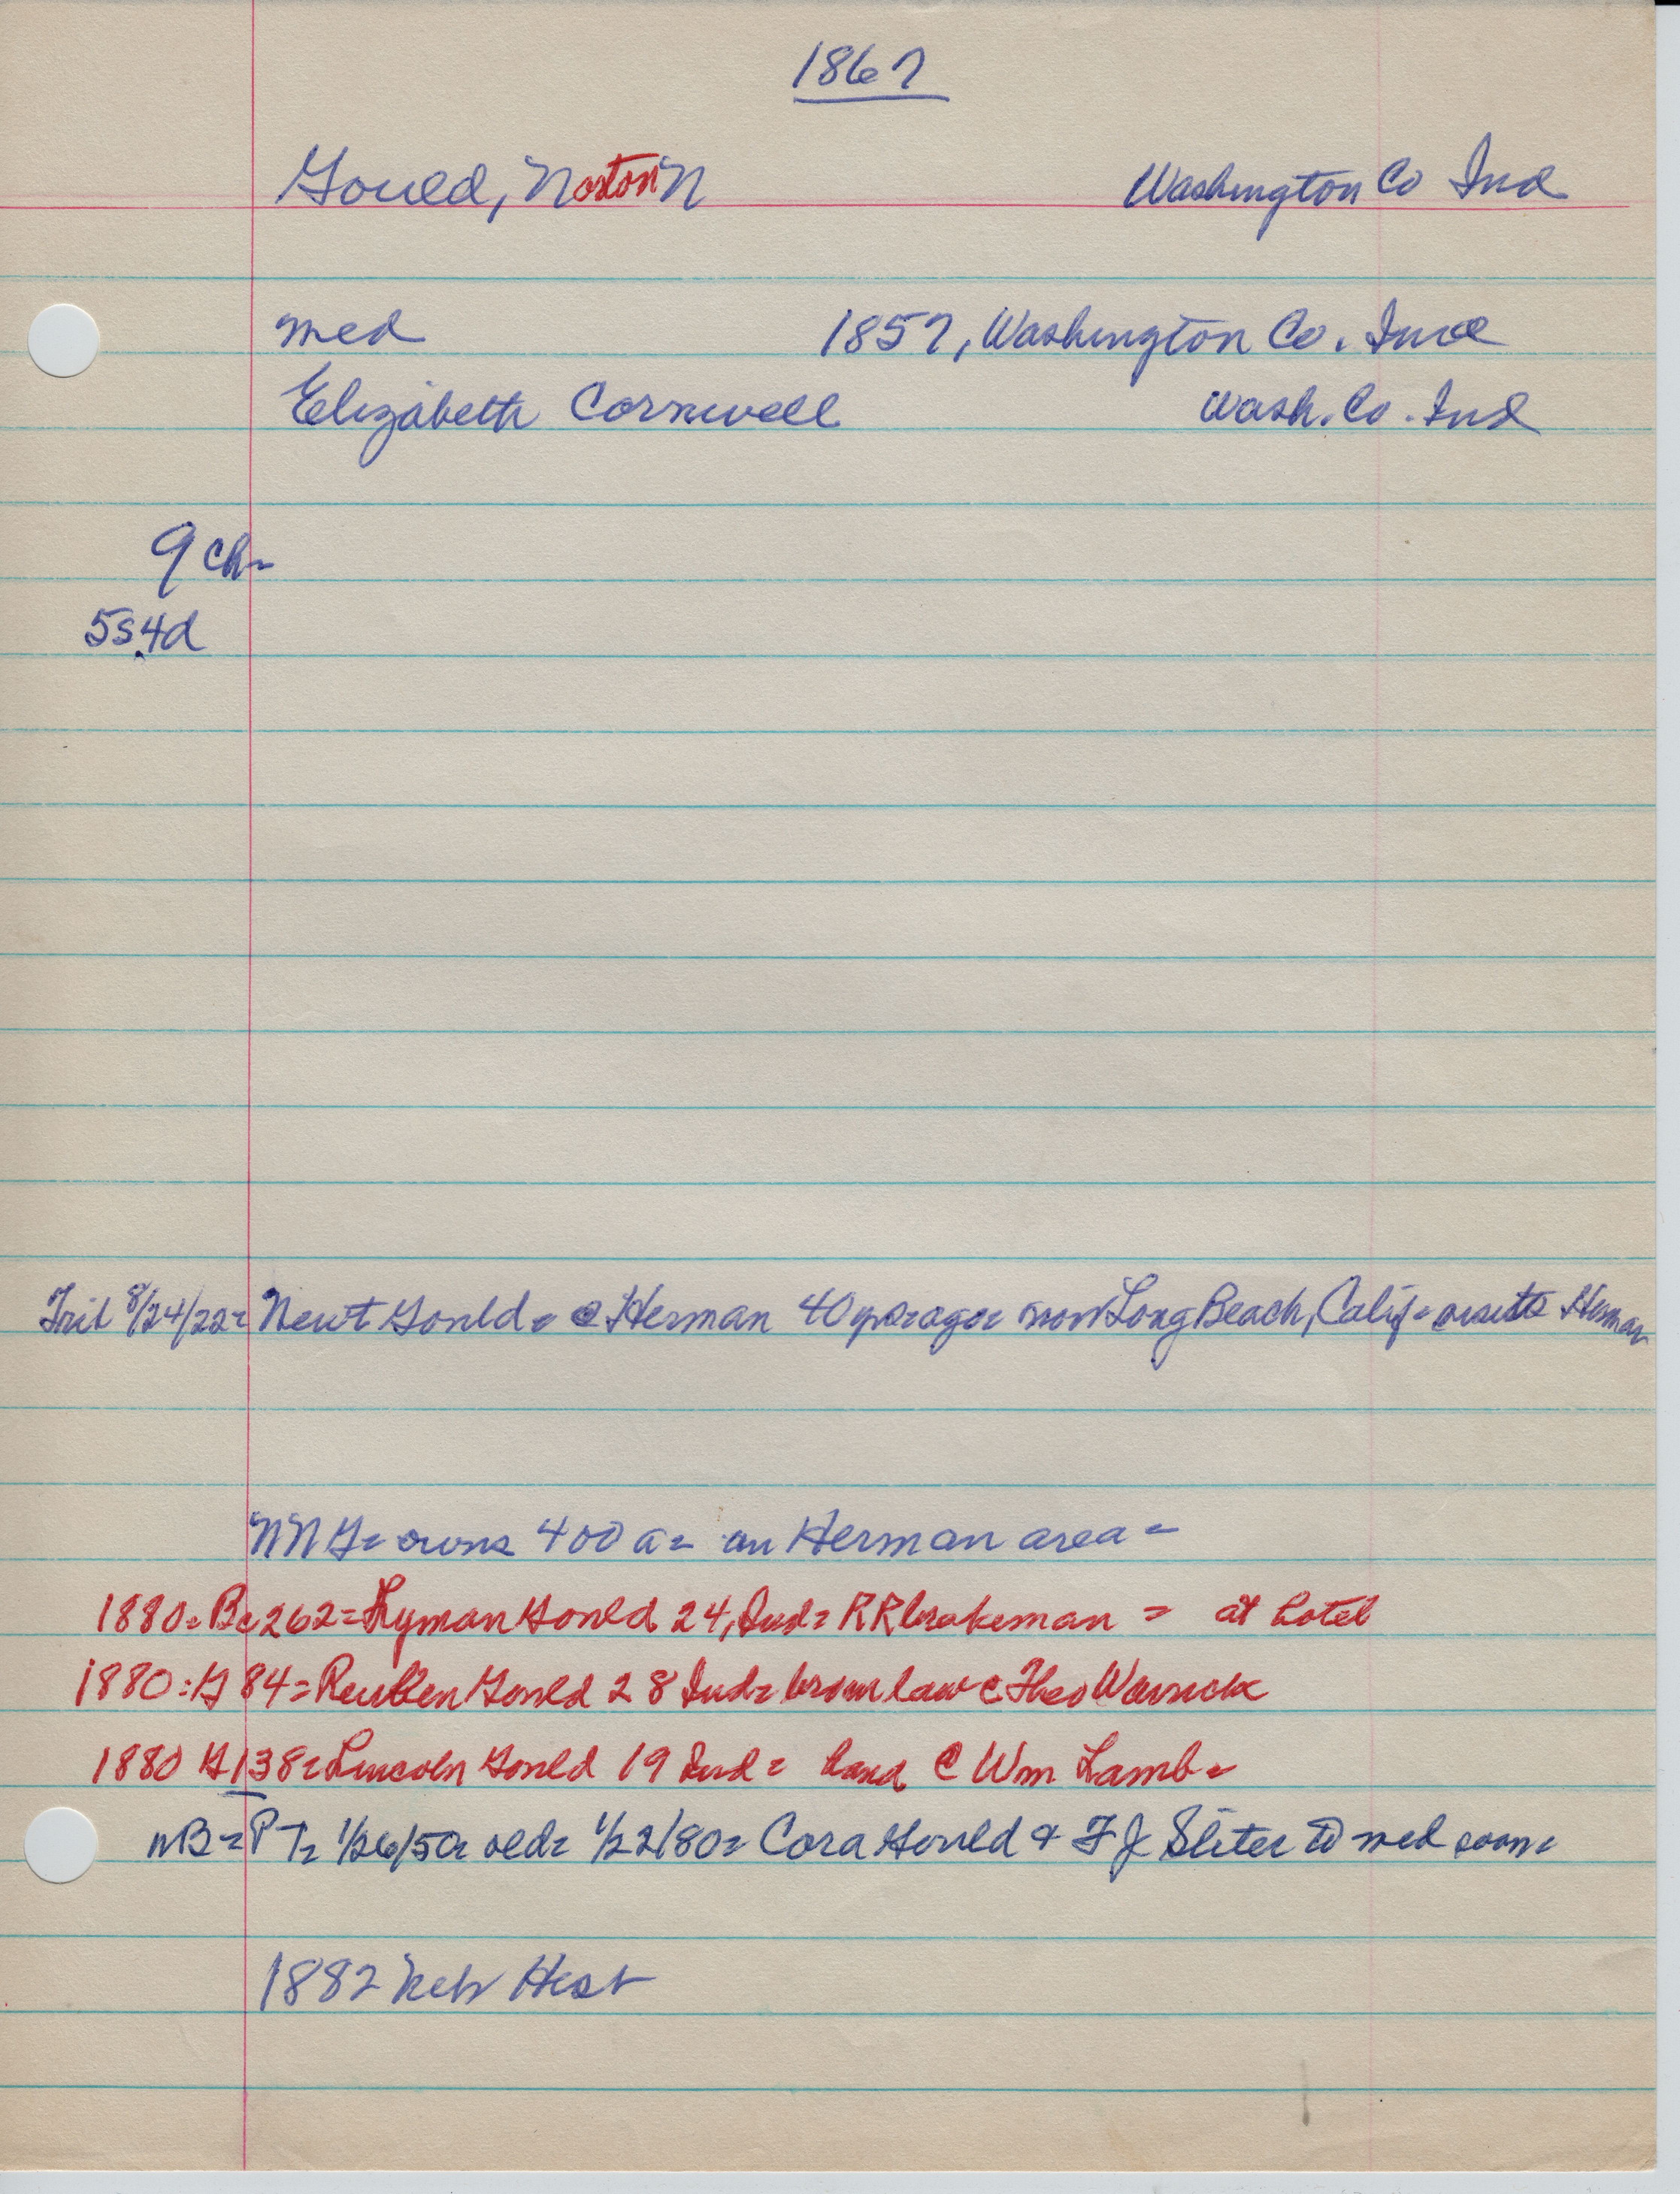 1867
Gould, Norton N Washington Co Ind
med 1857, Washington Co. Ind
Elizabeth Cornwell Wash. Co. Ind
9 ch=
5s, 4d
Trib 8/24/22= Newt Gould= @ Herman 40 yrs ago= now Long Beach, Calif= visits Herman
NNG= owns 400 a= in Herman area=
1880= Bc 262= Lyman Gould 24, Ind= RR brakeman = at hotel
1880: G 84= Reuben Gould 28 Ind= bro in law @ Theo Warrick
1880 G 138= Lincoln Gould 19 Ind= hand @ Wm Lamb=
NB= PT= 1/26/50= old= 1/22/80= Cora Gould & F J Sliter to med soon=
1882 Neb Hist